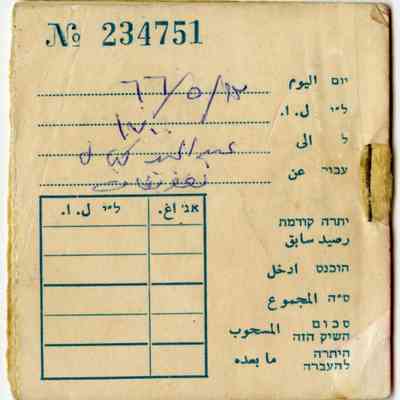 № 234751
יום اليوم ٦٦/٥/١٢
ל״י ل.ا. ١٧٠٠
ל الى
עבור عن
אג׳ اغ. ל״י ل.ا.
יתרה קודמת
رصيد سابق
הוכנס ادخل
ס״ה المجموع
סכום השיק הזה المسحوب
היתרה להעברה ما بعده